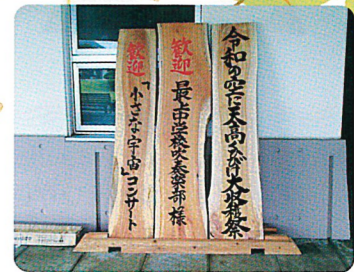 令和の空に天高くひびけ大収穫祭
歓迎 最上市学校吹奏楽部様
歓迎 「小さな宇宙」コンサート